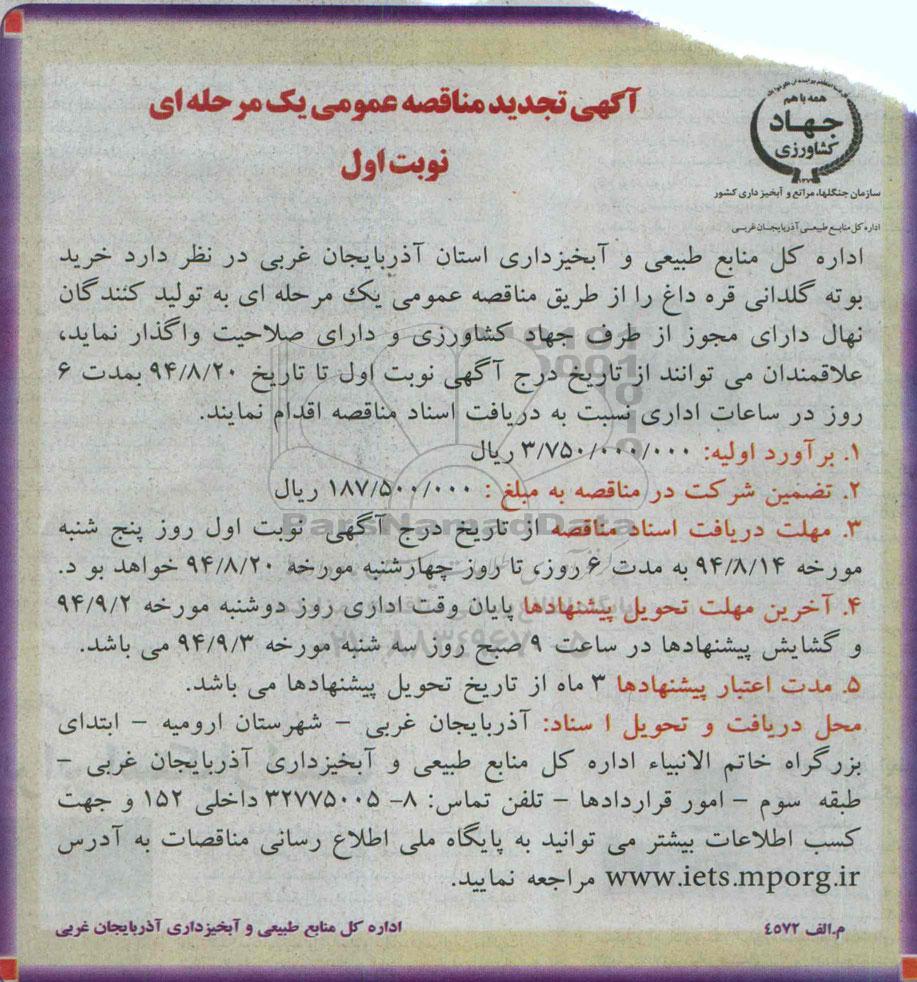 آگهی تجدید مناقصه عمومی یک مرحله ای
نوبت اول
همه با هم
جهاد
کشاورزی
سازمان جنگلها، مراتع و آبخیزداری کشور
اداره کل منابع طبیعی آذربایجان غربی
اداره کل منابع طبیعی و آبخیزداری استان آذربایجان غربی در نظر دارد خرید
بوته گلدانی قره داغ را از طریق مناقصه عمومی یک مرحله ای به تولید کنندگان
نهال دارای مجوز از طرف جهاد کشاورزی و دارای صلاحیت واگذار نماید،
علاقمندان می توانند از تاریخ درج آگهی نوبت اول تا تاریخ ۹۴/۸/۲۰ بمدت ۶
روز در ساعات اداری نسبت به دریافت اسناد مناقصه اقدام نمایند.
۱. برآورد اولیه: ۳/۷۵۰/۰۰۰/۰۰۰ ریال
۲. تضمین شرکت در مناقصه به مبلغ : ۱۸۷/۵۰۰/۰۰۰ ریال
۳. مهلت دریافت اسناد مناقصه از تاریخ درج آگهی نوبت اول روز پنج شنبه
مورخه ۹۴/۸/۱۴ به مدت ۶ روز، تا روز چهارشنبه مورخه ۹۴/۸/۲۰ خواهد بو د.
۴. آخرین مهلت تحویل پیشنهادها پایان وقت اداری روز دوشنبه مورخه ۹۴/۹/۲
و گشایش پیشنهادها در ساعت ۹ صبح روز سه شنبه مورخه ۹۴/۹/۳ می باشد.
۵. مدت اعتبار پیشنهادها ۳ ماه از تاریخ تحویل پیشنهادها می باشد.
محل دریافت و تحویل ا سناد: آذربایجان غربی – شهرستان ارومیه – ابتدای
بزرگراه خاتم الانبیاء اداره کل منابع طبیعی و آبخیزداری آذربایجان غربی –
طبقه سوم – امور قراردادها – تلفن تماس: ۸- ۳۲۷۷۵۰۰۵ داخلی ۱۵۲ و جهت
کسب اطلاعات بیشتر می توانید به پایگاه ملی اطلاع رسانی مناقصات به آدرس
www.iets.mporg.ir مراجعه نمایید.
م.الف ۴۵۷۲
اداره کل منابع طبیعی و آبخیزداری آذربایجان غربی
ParsNamadData